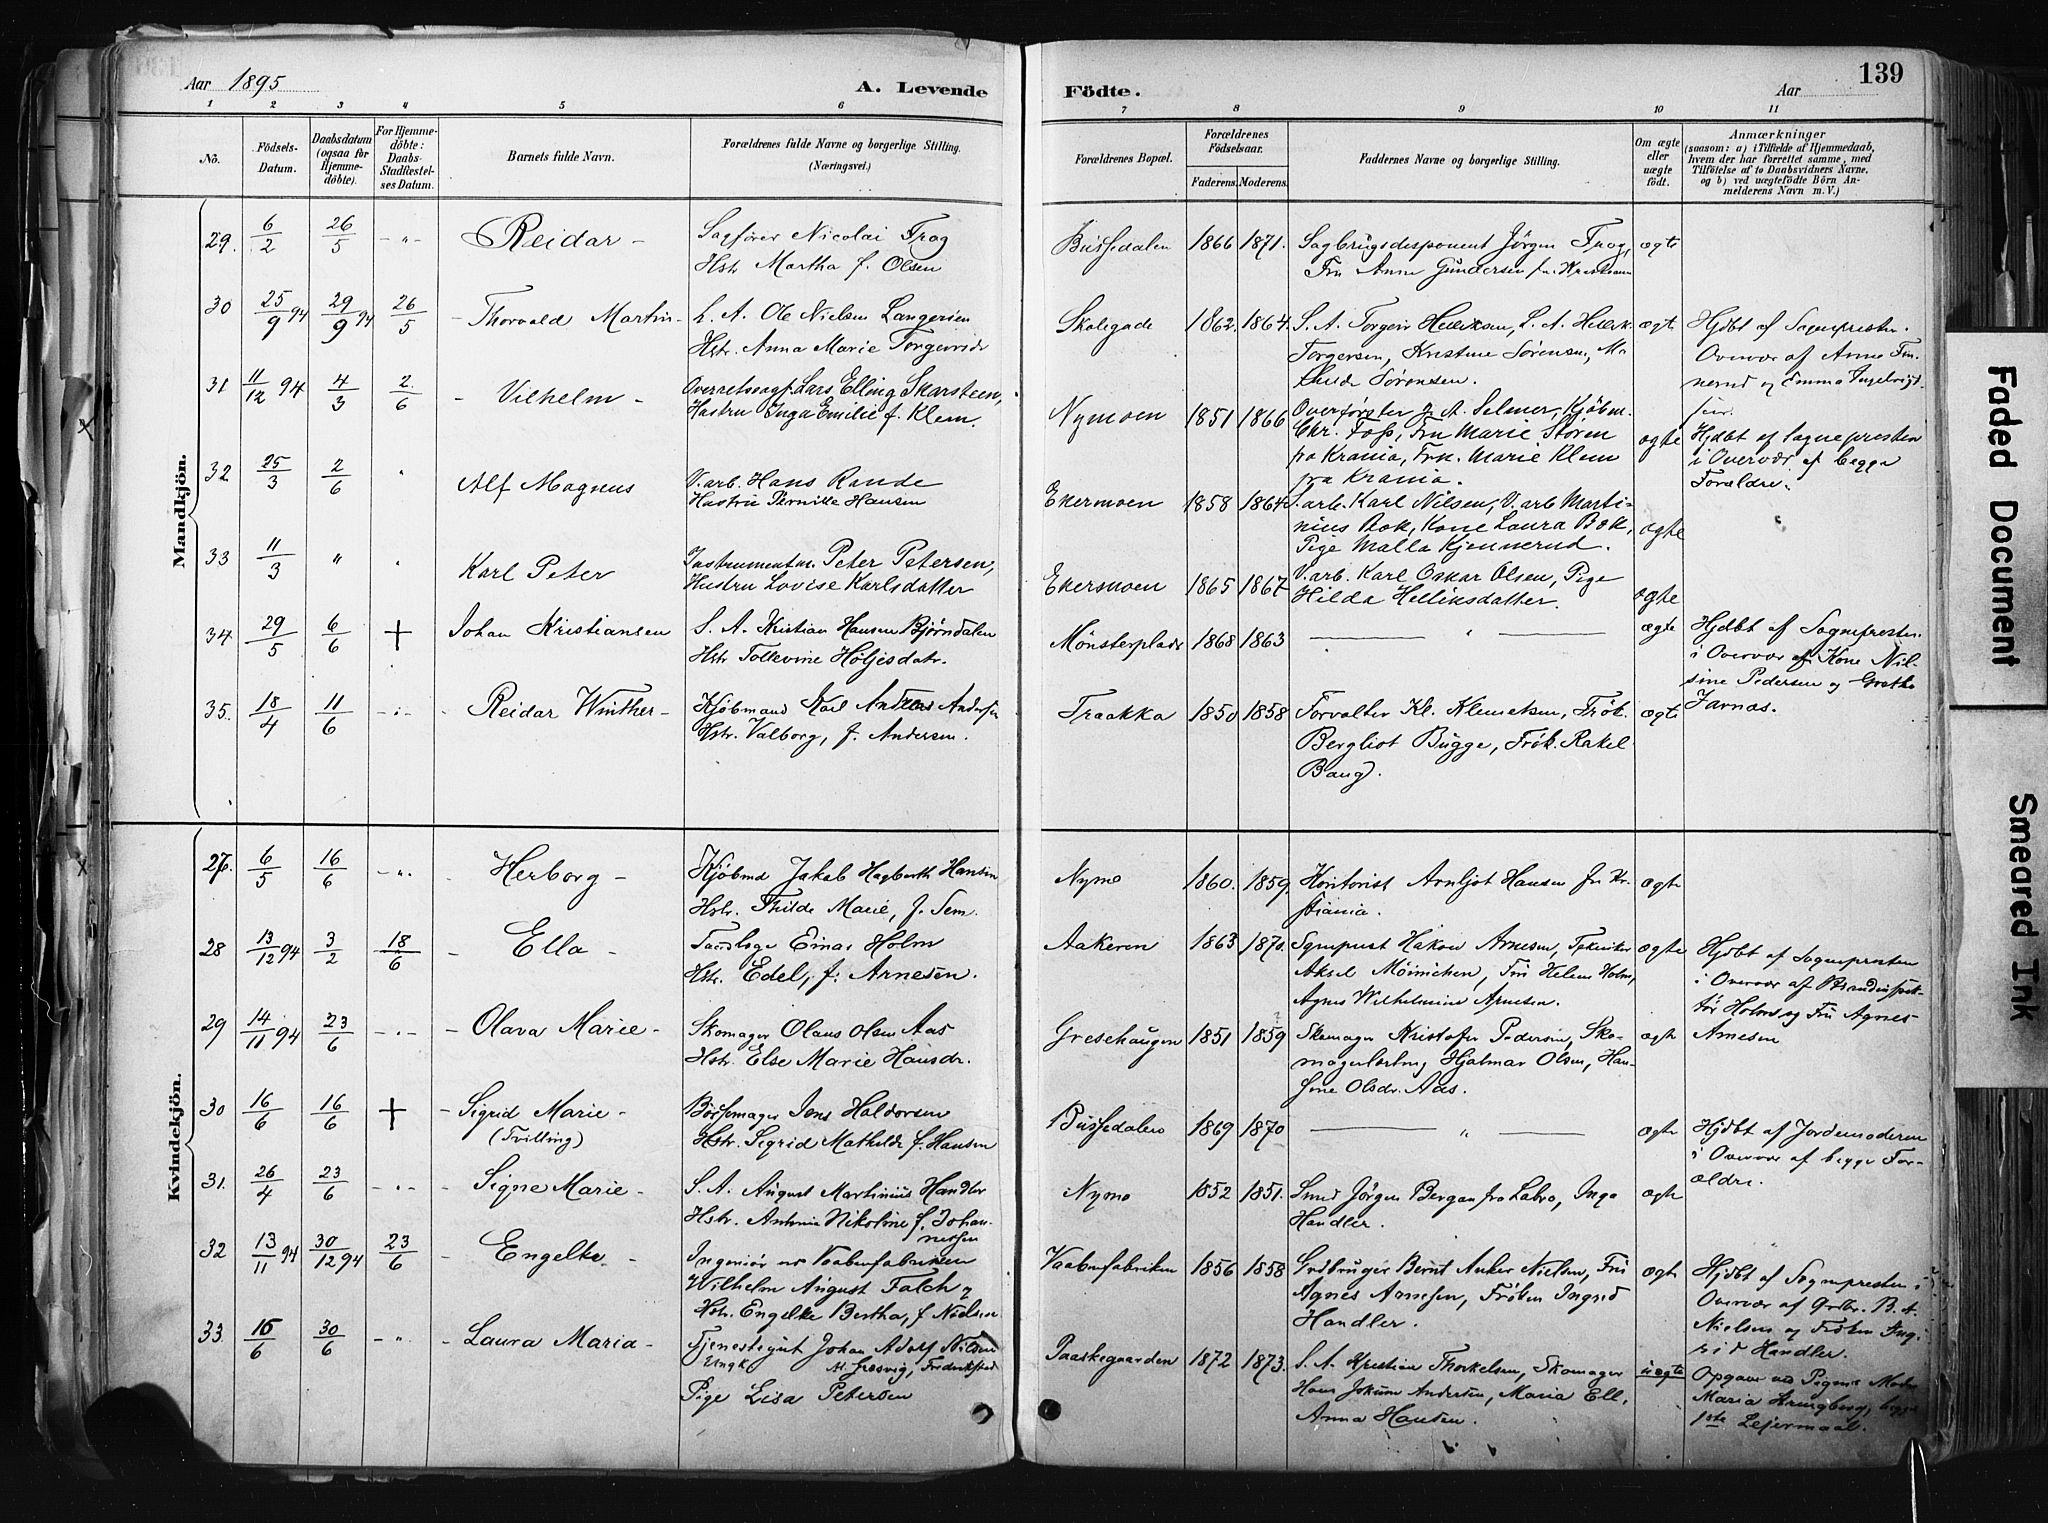 139
Aar 1895
A. Levende
Födte.
Aar
1 2 3 4 5 6 7 8 9 10 11
No.
Födsels-
Datum.
Daabsdatum
(ogsaa for
Hjemme-
döbte).
For Hjemme-
döbte:
Daabs-
Stadfæstel-
ses Datum.
Barnets fulde Navn.
Forældrenes fulde Navne og borgerlige Stilling.
(Næringsvei.)
Forældrenes Bopæl.
Forældrenes
Födselsaar.
Faderens. Moderens.
Faddernes Navne og borgerlige Stilling.
Om ægte
eller
uægte
födt.
Anmærkninger
(saasom: a) i Tilfælde af Hjemmedaab,
hvem der har forrettet samme, med
Tilföielse af to Daabsvidners Navne,
og b) ved uægtefödte Börn An-
melderens Navn m. V.)
Mandkjön.
29. 6/2 26/5 -"- Reidar - Sagfører Nicolai Frog
Hstr. Martha f. Olsen
Bussedalen 1866 1871. Sagbrugsdisponent Jörgen Frog, ægte
Fru Anne Gundersen fra
30 25/9 94 29/9 94 26/5 - Thorvald Martin - L. A. Ole Nielsen
Hstr. Anna Marie
Skolegade 1862. 1864. S. A. Torgeir Helliksen, L. A. Hellik
Torgersen, Kristine Sørensen,
Sørensen.
ægte Hjdbt af Sognepresten.
Overvær af Anne
og Emma
31 11/12 94 4/3 2/6 - Vilhelm - Overretssagf. Lars Elling Skarsteen,
Hustru Inga Emilie f. Klem.
Nymoen 1851 1866 Overförster J. A. Selmer, Kjøbm.
Chr. Foss, Fru Marie Støren
fra Krania, Frk. Marie Klem
fra Krania.
ægte Hjdbt af Sognepresten
i Overvær af begge
Forældre.
32 25/3 2/6 " Alf Magnus V.arb. Hans Rande
Hustru Pernille Hansen
Ekermoen 1858 1864 S.arb. Karl Nilsen, V. arb Marti-
nius Bok, Kone Laura Bok,
Pige Malla Kjennerud.
ægte
33 11/3 " " Karl Peter Instrumentm. Peter Petersen,
Hustru Lovise Karlsdatter
Ekermoen 1865 1867 V.arb. Karl Oskar Olsen, Pige
Hilda Helliksdatter.
ægte
34. 29/5 6/6 + Johan Kristiansen S. A. Kristian Hansen Bjørndalen
Hstr. Tollevine Höljesdatr.
Mönsterplads 1868 1863 — " — ægte Hjdbt af Sognepresten
i Overvær af Kone Nil-
sine Pedersen og Grethe
Jarnæs.
35. 18/4 11/6 -"- Reidar Winther - Kjöbmand Karl Andreas Andersen
Hstr. Valborg, f. Andersen.
Traakka 1850 1858 Forvalter Kl. Klemetsen, Frøk.
Bergliot Bugge, Frøk. Rakel
Bang.
ægte
Kvindekjön.
27. 6/5 16/6 -"- Herborg - Kjöbmd Jakob Hagbarth Hansen
Hstr. Thilde Marie, f. Sem.
Nymo 1860. 1859. Kontorist Arnljot Hansen fra Kr-
stiania.
ægte
28 13/12 94 3/2 18/6 - Ella - Tandlæge Einar Holm
Hstr. Edel, f. Arnesen.
Aakeren 1863 1870. Sgneprest Håkon Arnesen, Tekniker
Aksel Möinichen, Fru Helene Holm,
Agnes Wilhelmine Arnesen.
ægte Hjdbt af Sognepresten
i Overvær af Brandinspek-
tör Holm og Fru Agnes
Arnesen
29 14/11 94 23/6 -"- Olava Marie - Skomager Olaus Olsen Aas
Hstr. Else Marie Hansdr.
Gresehaugen 1851 1859 Skomager Kristofer Pedersen, Sko-
magerlærling Hjalmar Olsen, Han-
sine Olsdr. Aas.
ægte
30 16/6 16/6 + - Sigrid Marie -
(Tvilling)
Börsemager Jens Haldorsen
Hstr. Sigrid Mathilde f. Hansen
Bussedalen 1869 1870 — " — ægte Hjdbt af Jordemoderen
i Overvær af begge For-
ældre.
31. 26/4 23/6 -"- Signe Marie - S. A. August Martinius Handler
Hstr. Antonie Nikoline f. Johan-
nessen
Nymo 1852 1851. Smed Jörgen Bergan fra Labro, Inga
Handler.
ægte
32 13/11 94 30/12 94 23/6 - Engelke - Ingeniör ved Vaabenfabriken
Wilhelm August Falch &
Hstr. Engelke Bertha, f. Nielsen
Vaabenfabriken 1856 1858 Grdbruger Bernt Anker Nielsen, Fru
Agnes Arnesen, Fröken Ingrid
Handler.
ægte Hjdbt af Sognepresten i
Overvær af Grdbr. B. A.
Nielsen og Fröken Ing-
rid Handler.
33. 16/6 30/6 -"- Laura Maria - Tjenestegut Johan Adolf Nilsen
Ungk Græsvig, Fredrikstad
Pige Lisa Petersen
Paaskegaarden 1872 1873. S. A. Kristian Thorkelsen, Skomager
Hans Jokum Andersen, Maria Ell,
Anna Hansen.
uægte Opgave ved Pigens Moder
Maria Kringberg, begges
1ste Leiermaal.
Faded Document
Smeared Ink